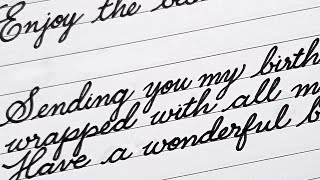 Enjoy the
Sending you my birth
wrapped with all m
Have a wonderful b